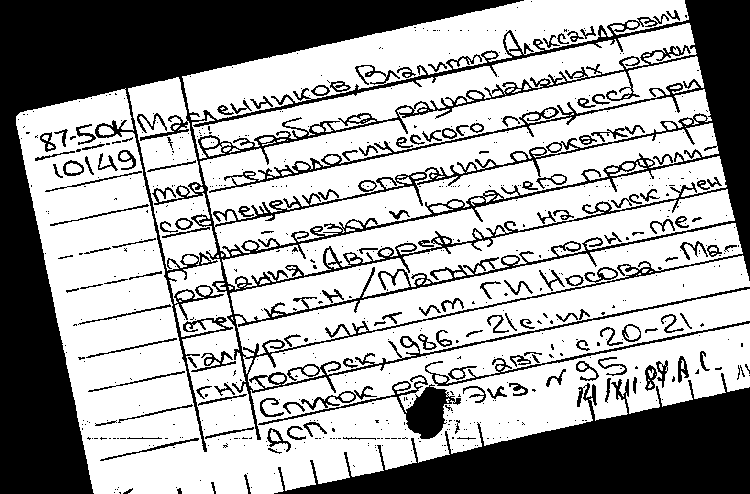 87-50К
10149
Масленников, Владимир Александрович.
Разработка рациональных режи-
мов технологического процесса при
совмещении операций прокатки, про-
дольной резки и горячего профили-
рования: Автореф. дис. на соиск. учен.
степ. к.т.н. / Магнитог. горн.-ме-
таллург. ин-т им. Г.И. Носова. - Ма-
гнитогорск, 1986. - 21с.: ил.
Список работ авт.: с. 20-21.
ДСП. Экз. № 95.
14/XII 87. А.С.